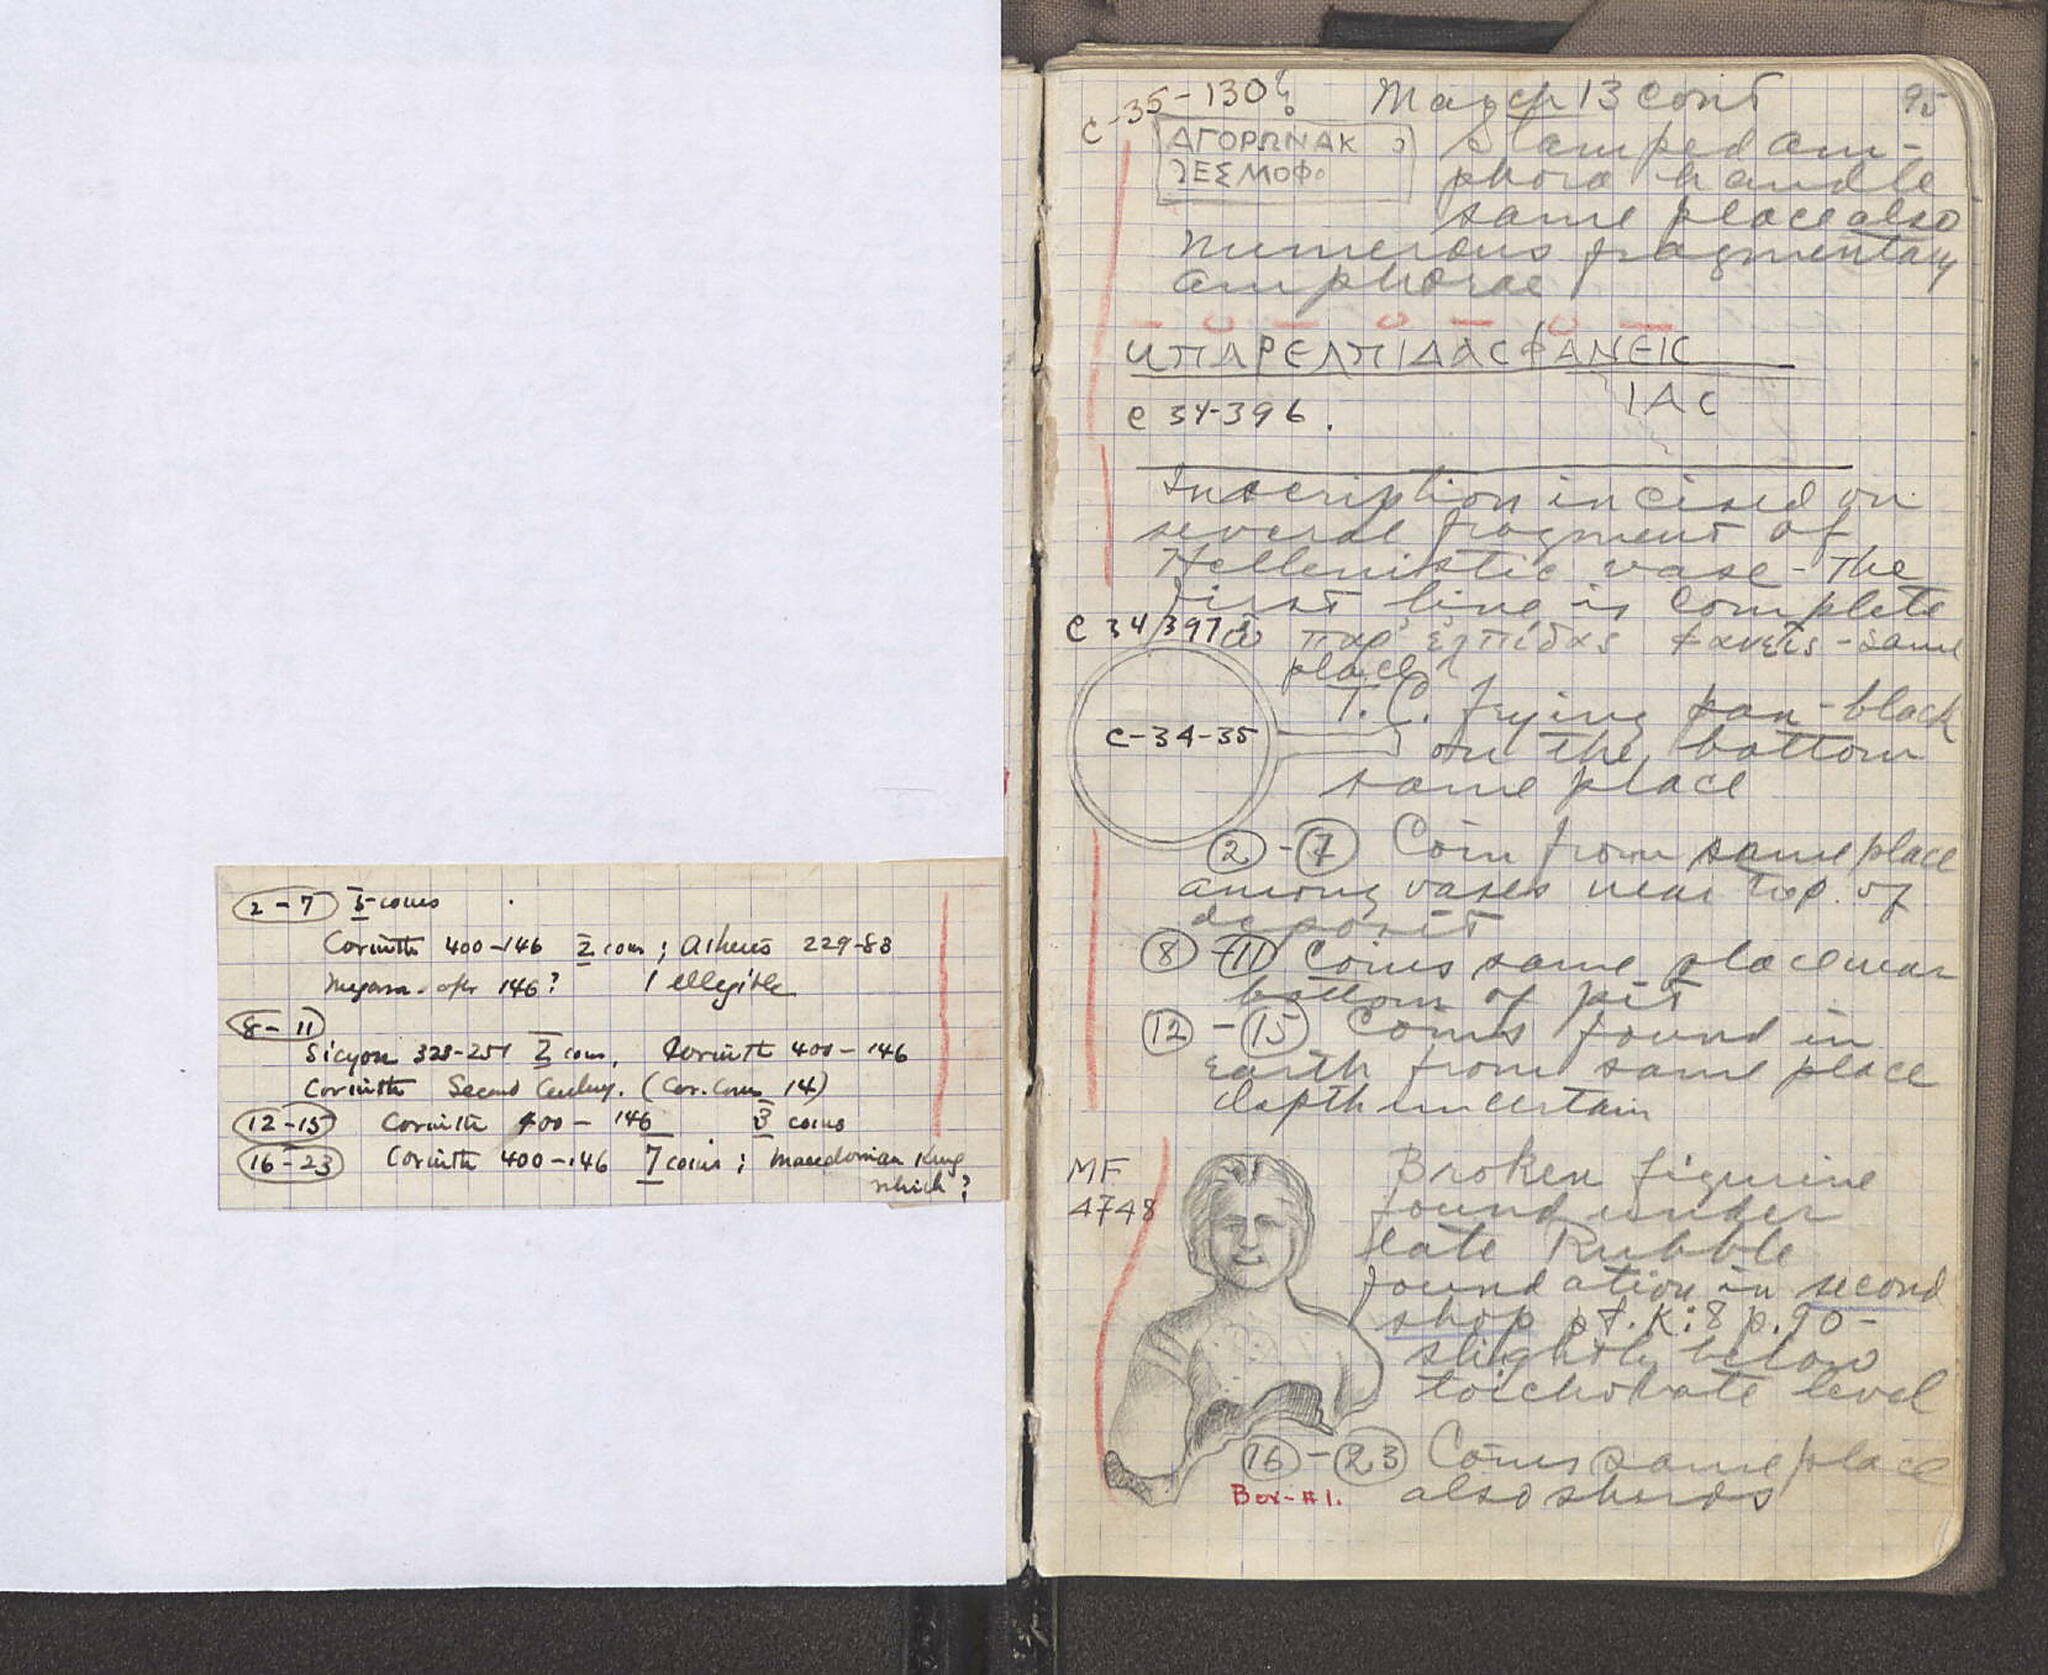 2-7 5 coins
Corinth 400-146 2 coins; Athens 229-83
Megara - after 146? 1 illegible
8-11
Sicyon 323-251 2 coins, Corinth 400-146
Corinth Second Century. (Cor. Coins 14)
12-15 Corinth 400-146 3 coins
16-23 Corinth 400-146 7 coins; Macedonian King
which?
C-35-130 March 13 cont 95
ΑΓΟΡΩΝΑΚ Stamped am-
ΕΣΜΟΦο phora handle
same place also
numerous fragmentary
amphorae
ΠΑΡΕΛΠΙΔΑC ΦΑΝΕΙC
ΙΑC
C 34-396.
Inscription incised on
several fragment of
Hellenistic vase - The
first line is complete
C 34/397 ὦ παρ' ἐλπίδας φανεὶς - same
place
T.C. frying pan - black
C-34-35 on the bottom
same place
2-7 Coin from same place
among vases near top. of
deposit
8-11 Coins same place near
bottom of pit
12-15 Coins found in
earth from same place
depth uncertain
MF
4748
Broken figurine
found under
late Rubble
foundation in second
shop pt. K:8 p.90-
slightly below
toichobate level
16-23 Coins same place
Box-#1. also sherds